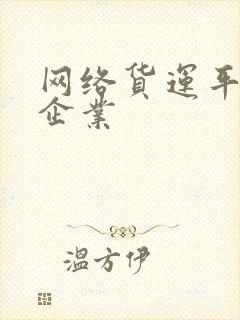 网络貨運平
企業
溫方伊